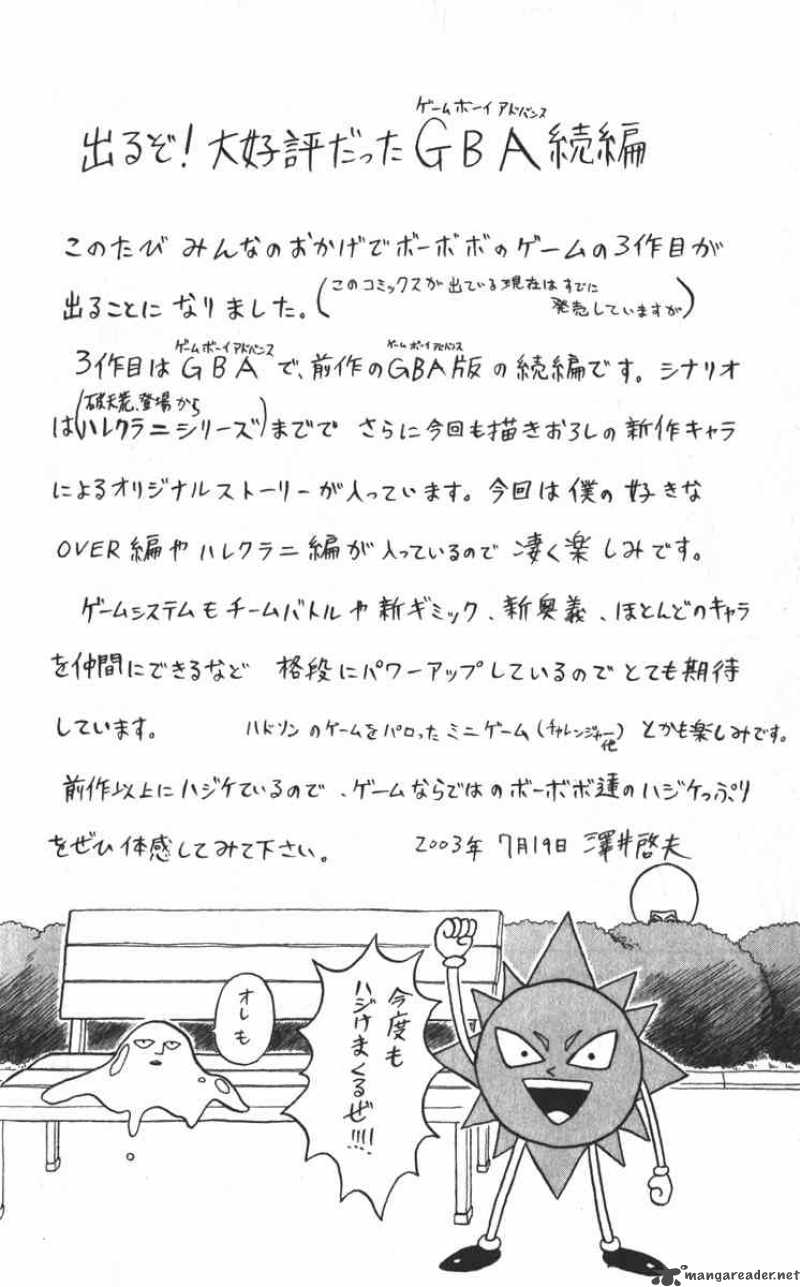 ゲームボーイアドバンス
出るぞ!大好評だったGBA続編
このたび みんなのおかげでボーボボのゲームの3作目が
出ることになりました。(このコミックスが出ている現在はすでに
発売していますが)
ゲームボーイアドバンス ゲームボーイアドバンス
3作目はGBAで、前作のGBA版の続編です。シナリオ
は(破天荒、登場から
ハレクラニシリーズ)までで さらに今回も描きおろしの新作キャラ
によるオリジナルストーリーが入っています。今回は僕の好きな
OVER編やハレクラニ編が入っているので 凄く楽しみです。
ゲームシステムもチームバトルや新ギミック、新奥義、ほとんどのキャラ
を仲間にできるなど 格段にパワーアップしているのでとても期待
しています。 ハドソンのゲームをパロったミニゲーム(チャレンジャー他)とかも楽しみです。
前作以上にハジケているので、ゲームならではのボーボボ達のハジケっぷり
をぜひ体感してみて下さい。 2003年7月19日 澤井啓夫
今度も
ハジけまくるぜ!!!!
オレも
mangareader.net